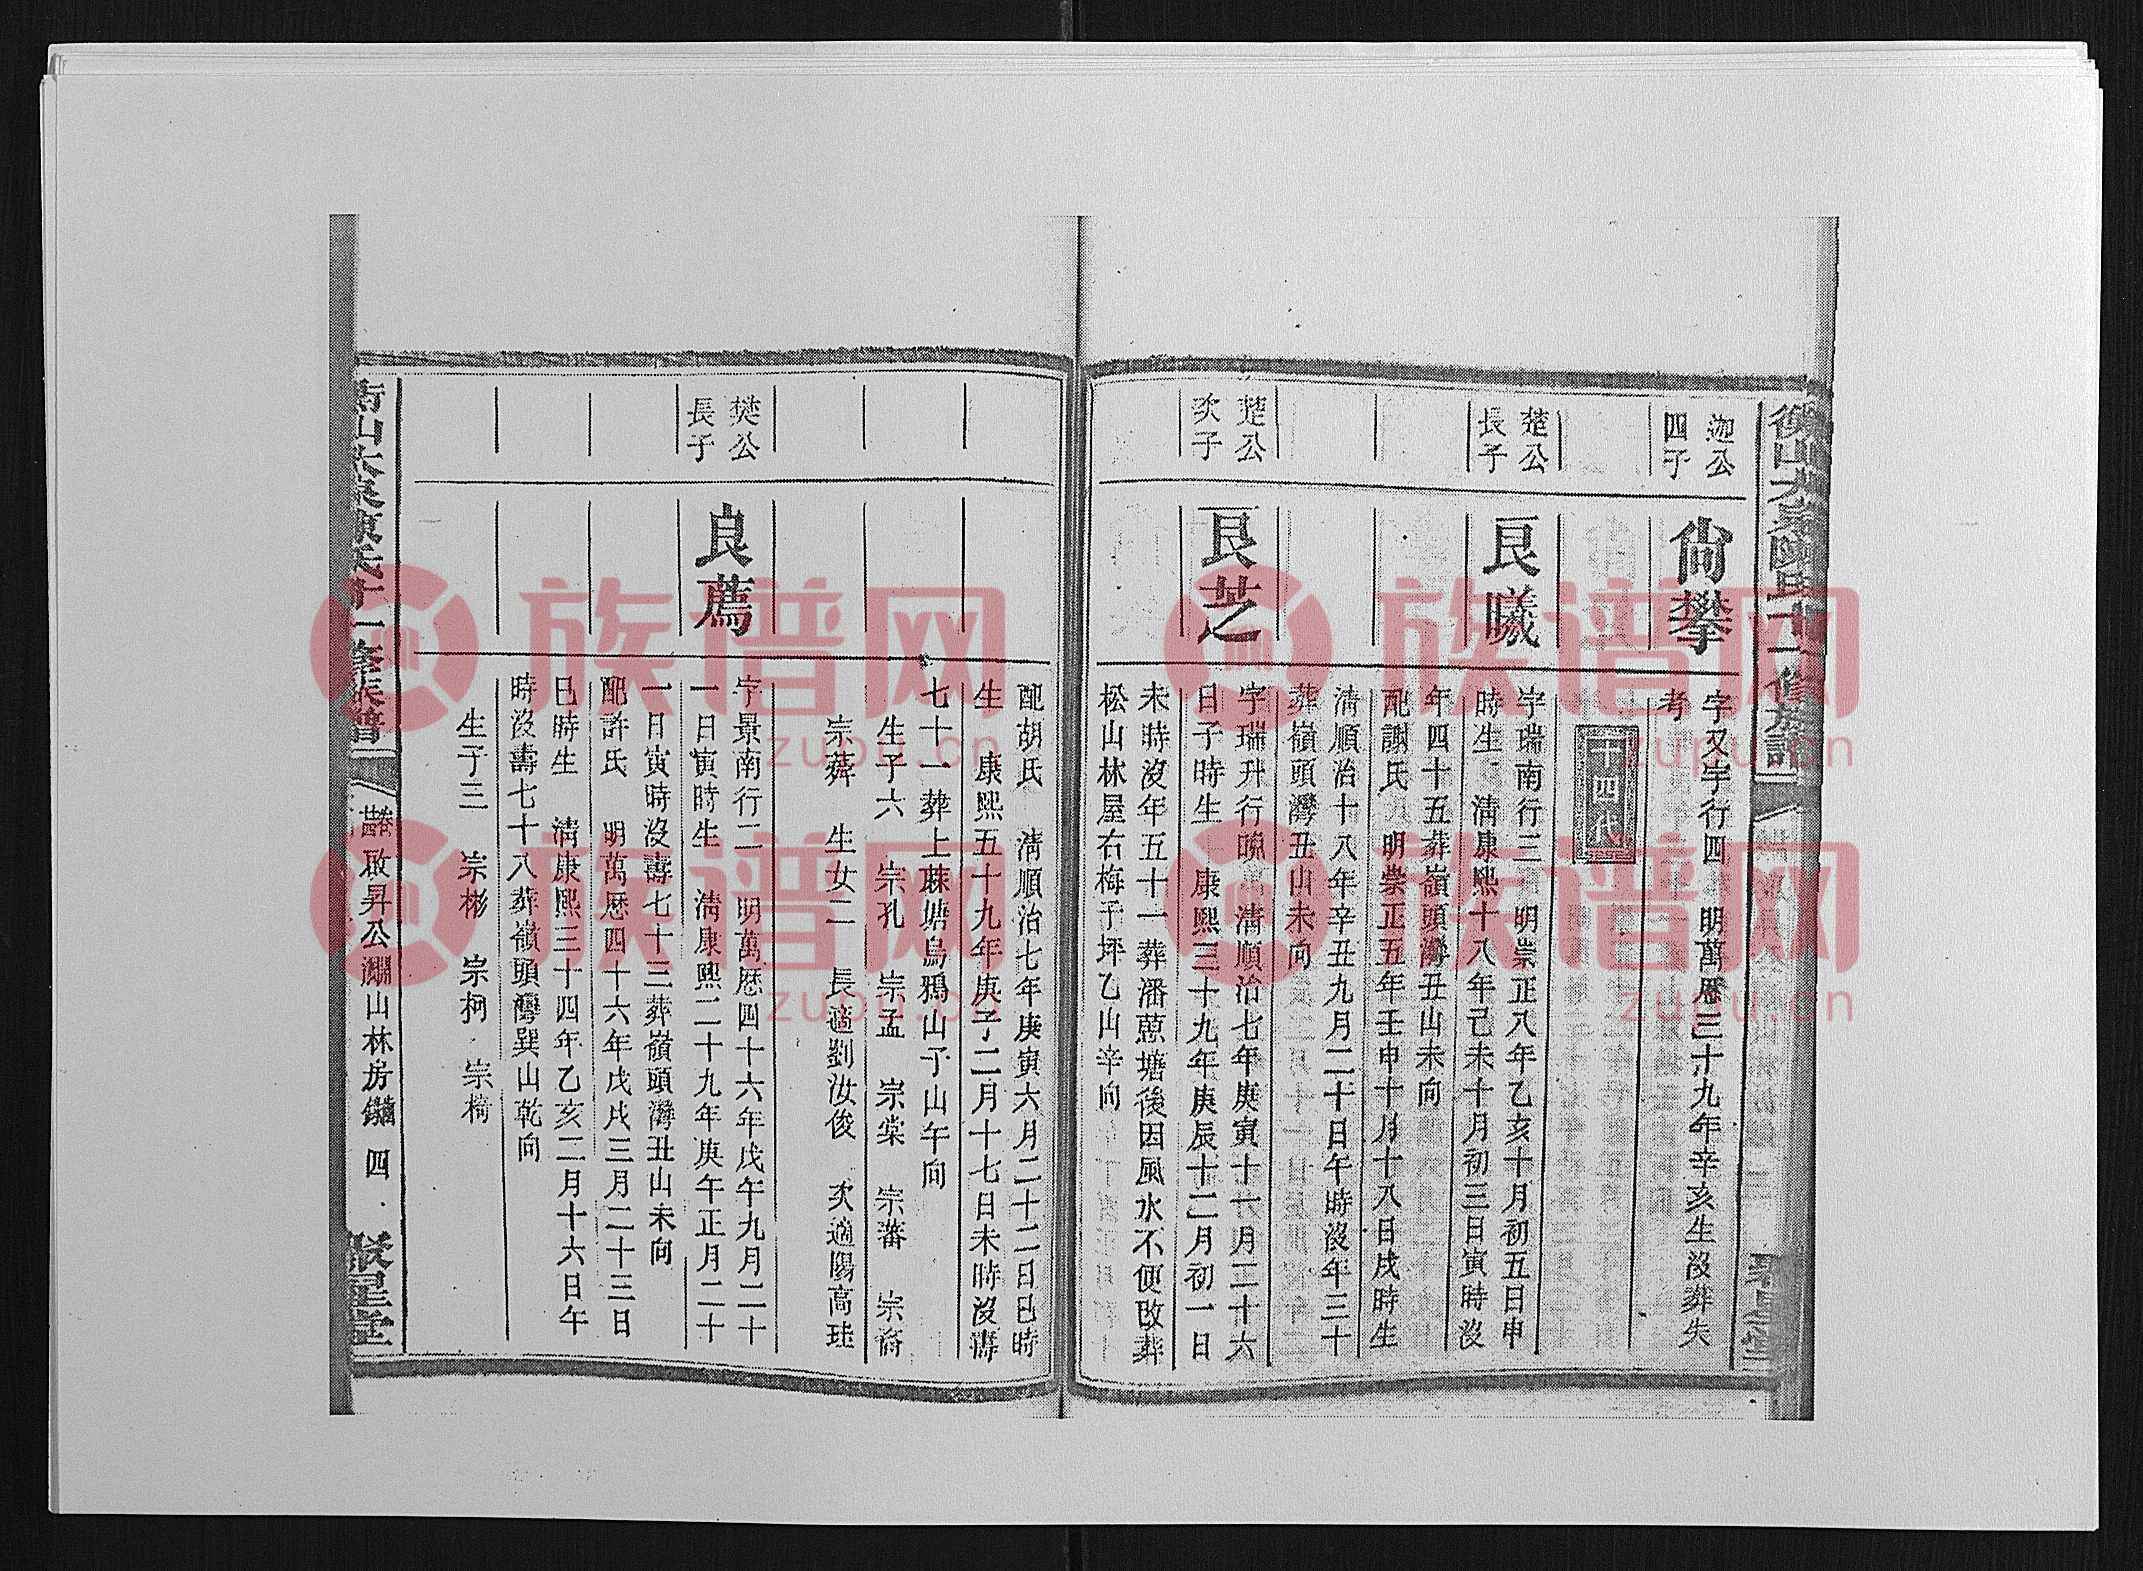 衡山大泉陳氏十一修族譜
迦公
四子
尙攀
字又字行四 明萬曆三十九年辛亥生沒葬失
考
十四代
楚公
長子
良曦
字瑞南行三 明崇正八年乙亥十月初五日申
時生 淸康熙十八年己未十月初三日寅時沒
年四十五葬嶺頭灣丑山未向
配謝氏 明崇正五年壬申十月十八日戌時生
淸順治十八年辛丑九月二十日午時沒年三十
葬嶺頭灣丑山未向
楚公
次子
良芝
字瑞升行晚 淸順治七年庚寅十一月二十六
日子時生 康熙三十九年庚辰十二月初一日
未時沒年五十一葬潘蒽塘後因風水不便改葬
松山林屋右梅子坪乙山辛向
配胡氏 淸順治七年庚寅六月二十二日巳時
生 康熙五十九年庚子二月十七日未時沒壽
七十一葬上蔴塘烏鴉山子山午向
生子六 宗孔 宗孟 宗棠 宗蕃 宗裔
宗蕣 生女二 長適劉汝俊 次適陽高珪
樊公
長子
良薦
字景南行二 明萬曆四十六年戊午九月二十
一日寅時生 淸康熙二十九年庚午正月二十
一日寅時沒壽七十三葬嶺頭灣丑山未向
配許氏 明萬曆四十六年戊戌三月二十三日
巳時生 淸康熙三十四年乙亥二月十六日午
時沒壽七十八葬嶺頭灣巽山乾向
生子三 宗彬 宗柯 宗椅
衡山大泉陳氏十一修族譜
卷 啟昇公淵山林房 四
聚星堂
族谱网
zupu.cn
族谱网
zupu.cn
族谱网
zupu.cn
族谱网
zupu.cn